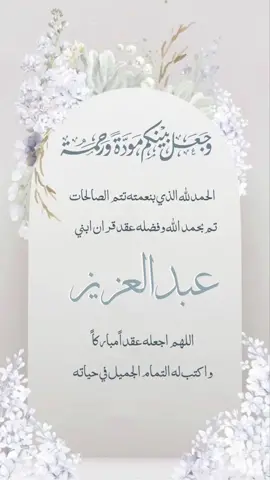 وجعل بينكم مودة ورحمة
الحمدلله الذي بنعمته تتم الصالحات
تم بحمد الله وفضله عقد قران ابني
عبدالعزيز
اللهم اجعله عقداً مباركاً
واكتب له التمام الجميل في حياته